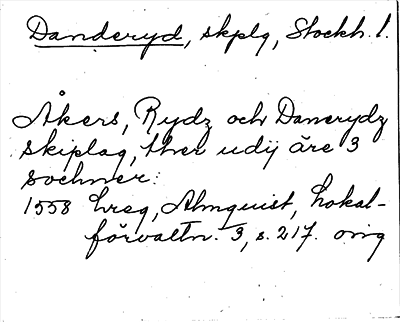 Danderyd, skplg, Stockh. l.
Åkers, Rydz och Danerydz
skiplag, ther udij äre 3
sochner:
1558 hreg, Almquist, Lokal-
förvaltn. 3, s. 217. orig